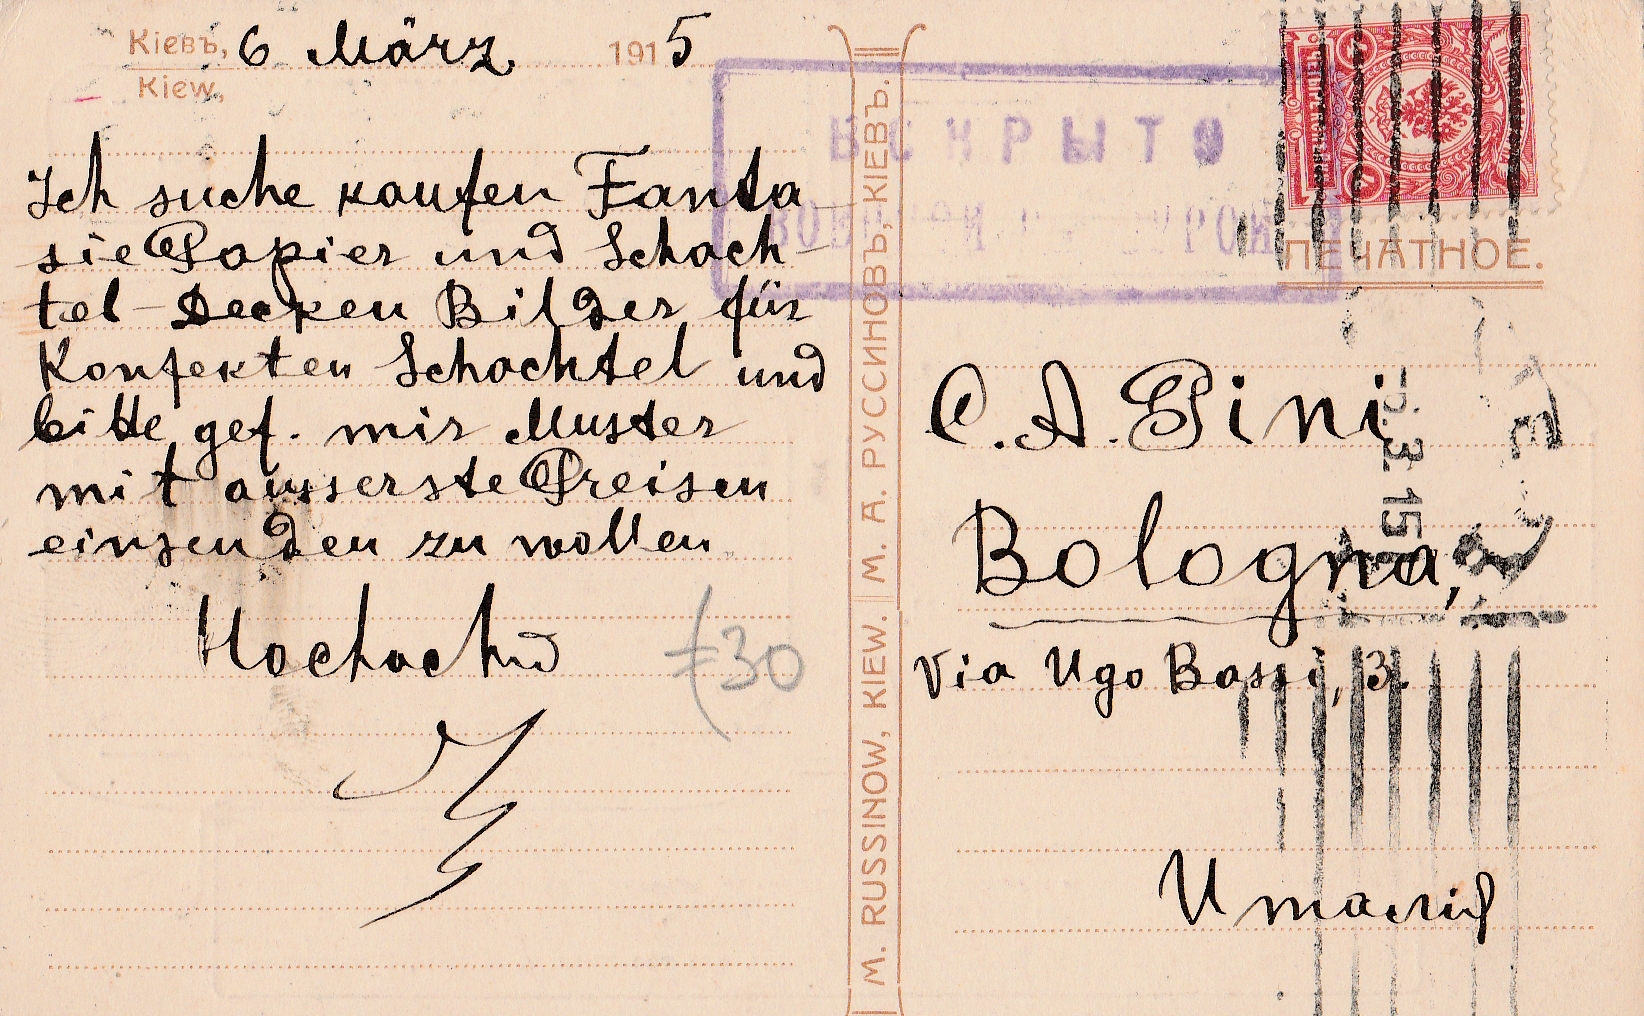 Кіевъ, 6 März 1915
Kiew,
Ich suche kaufen Fanta-
sie Papier und Schach-
tel-Decken Bilder für
Konfekten Schachtel und
bitte gef. mir Muster
mit äusserste Preisen
einsenden zu wollen
Hochacht
£30
М. RUSSINOW, KIEW. М. А. РУССИНОВЪ, КІЕВЪ.
ВСКРЫТО
ВОЕННОЙ
ПЕЧАТНОЕ.
C. A. Pini
Bologna,
Via Ugo Bassi, 3.
Италія
3 15